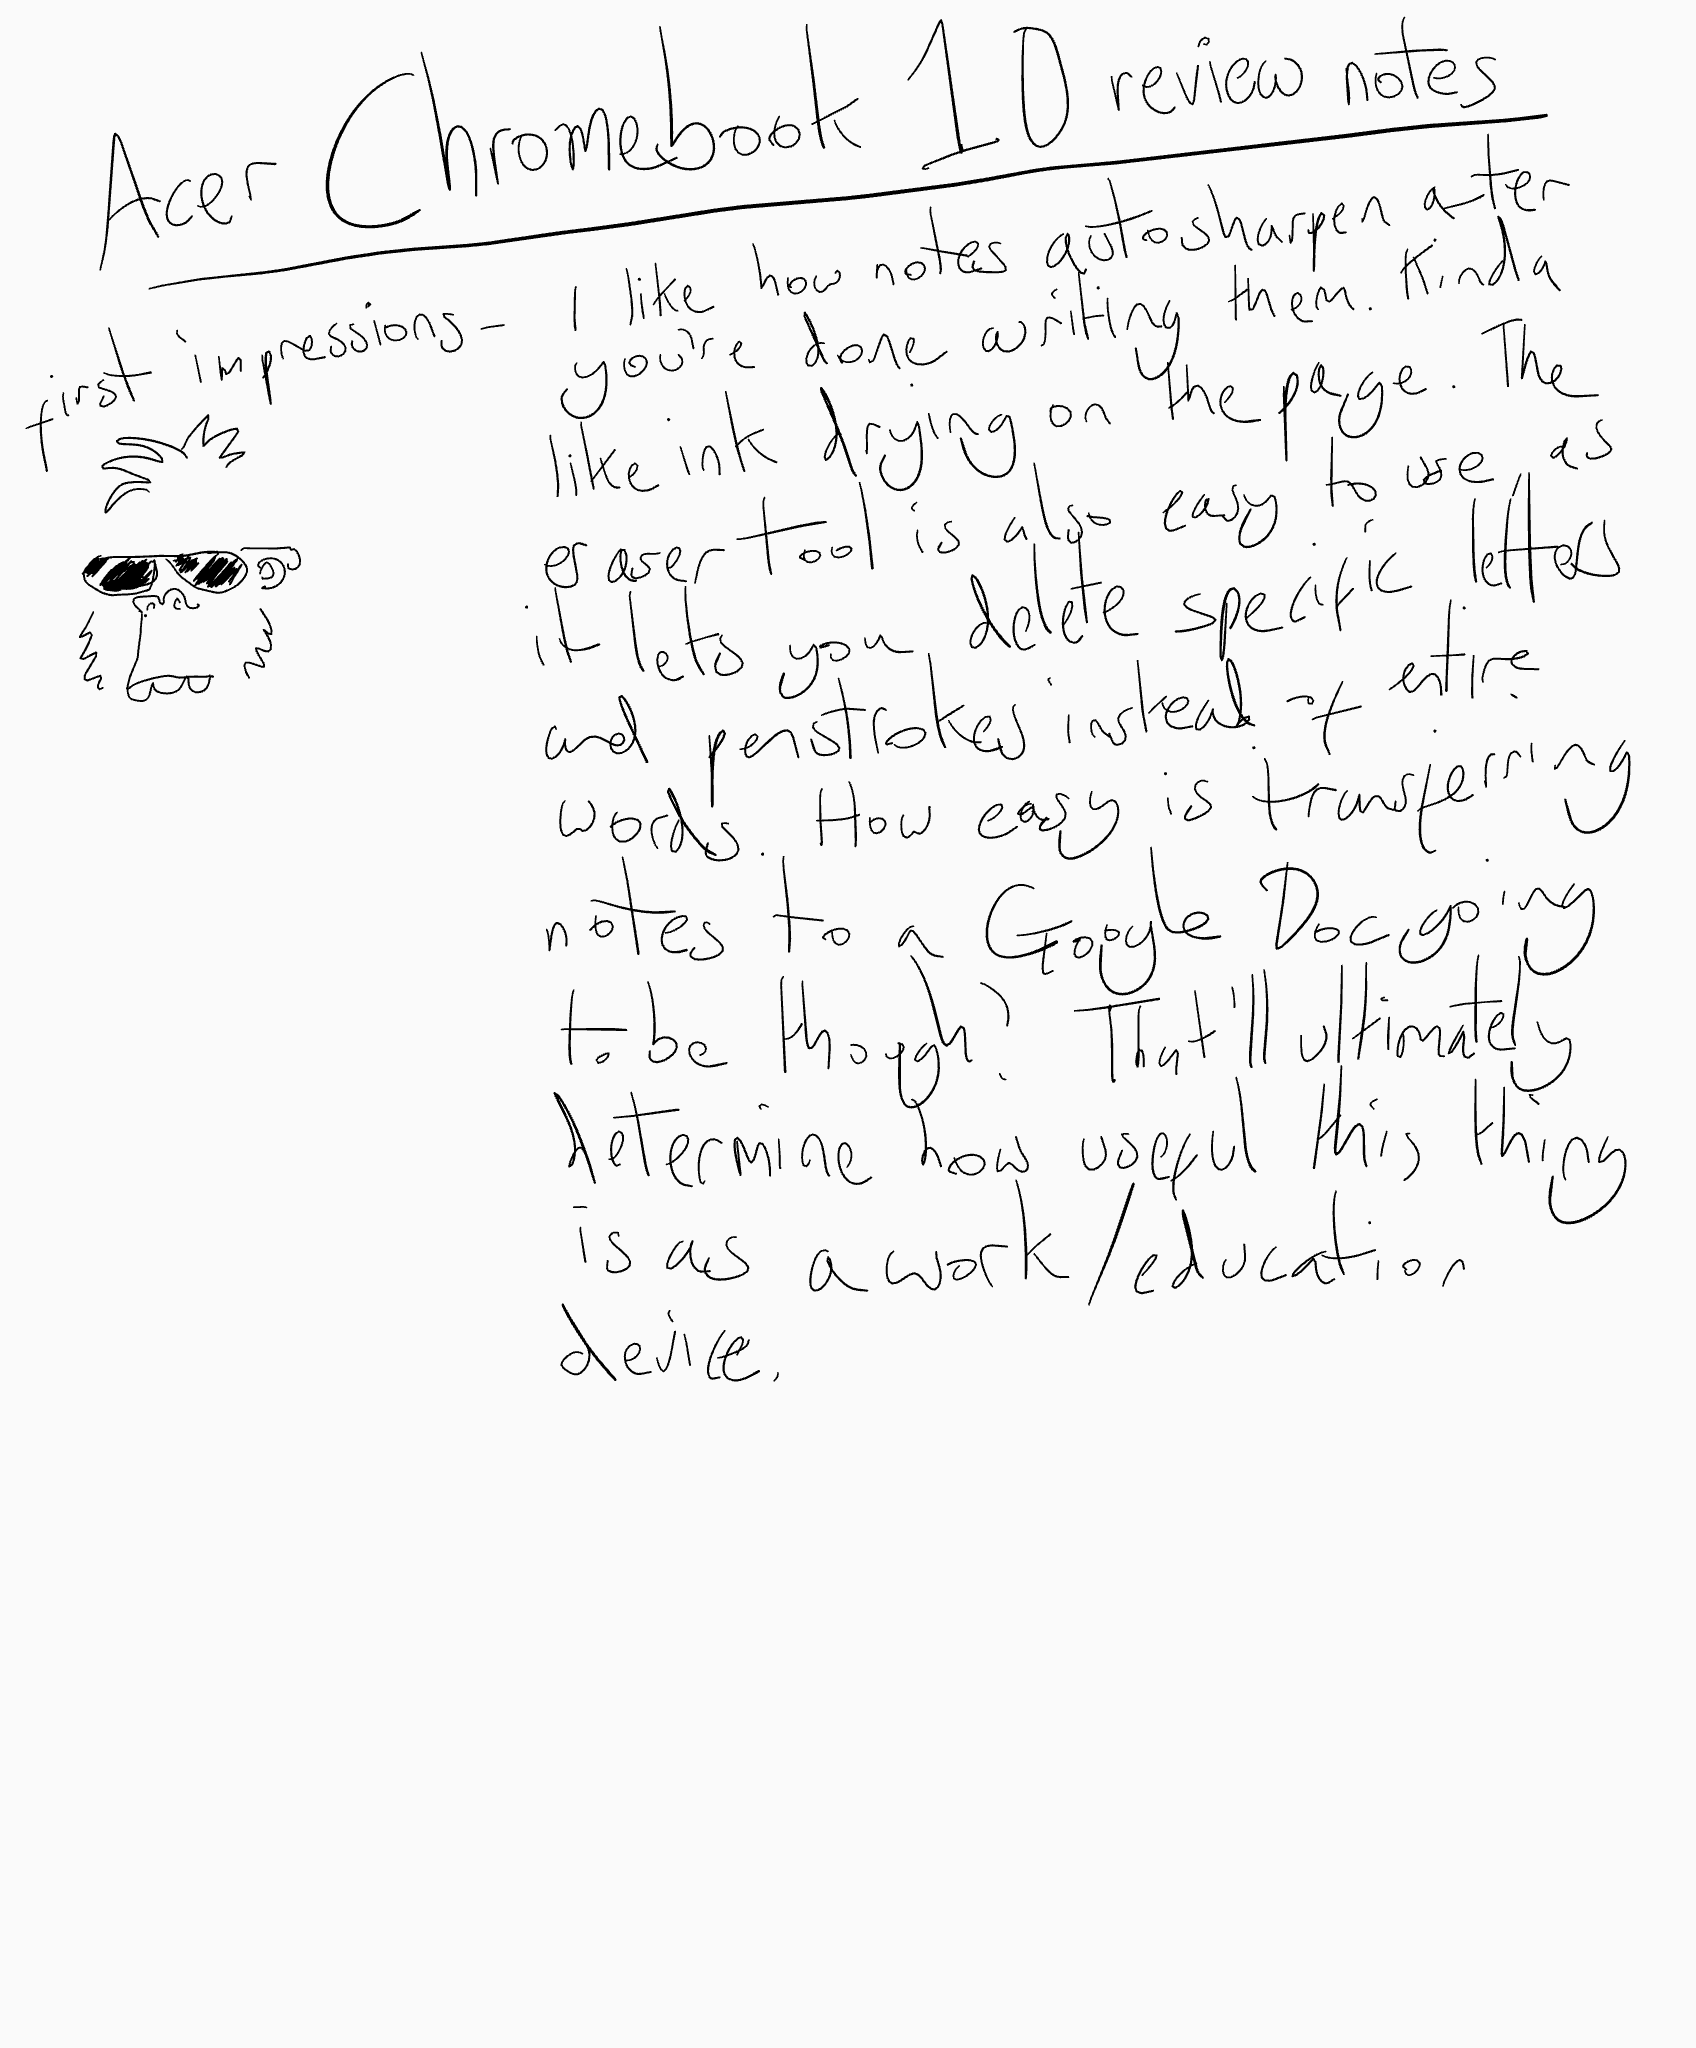 Acer Chromebook 10 review notes
first impressions - I like how notes autosharpen after
you're done writing them. Kinda
like ink drying on the page. The
eraser tool is also easy to use, as
it lets you delete specific letters
and penstrokes instead of entire
words. How easy is transferring
notes to a Google Doc going
to be though? That'll ultimately
determine how useful this thing
is as a work/education
device.